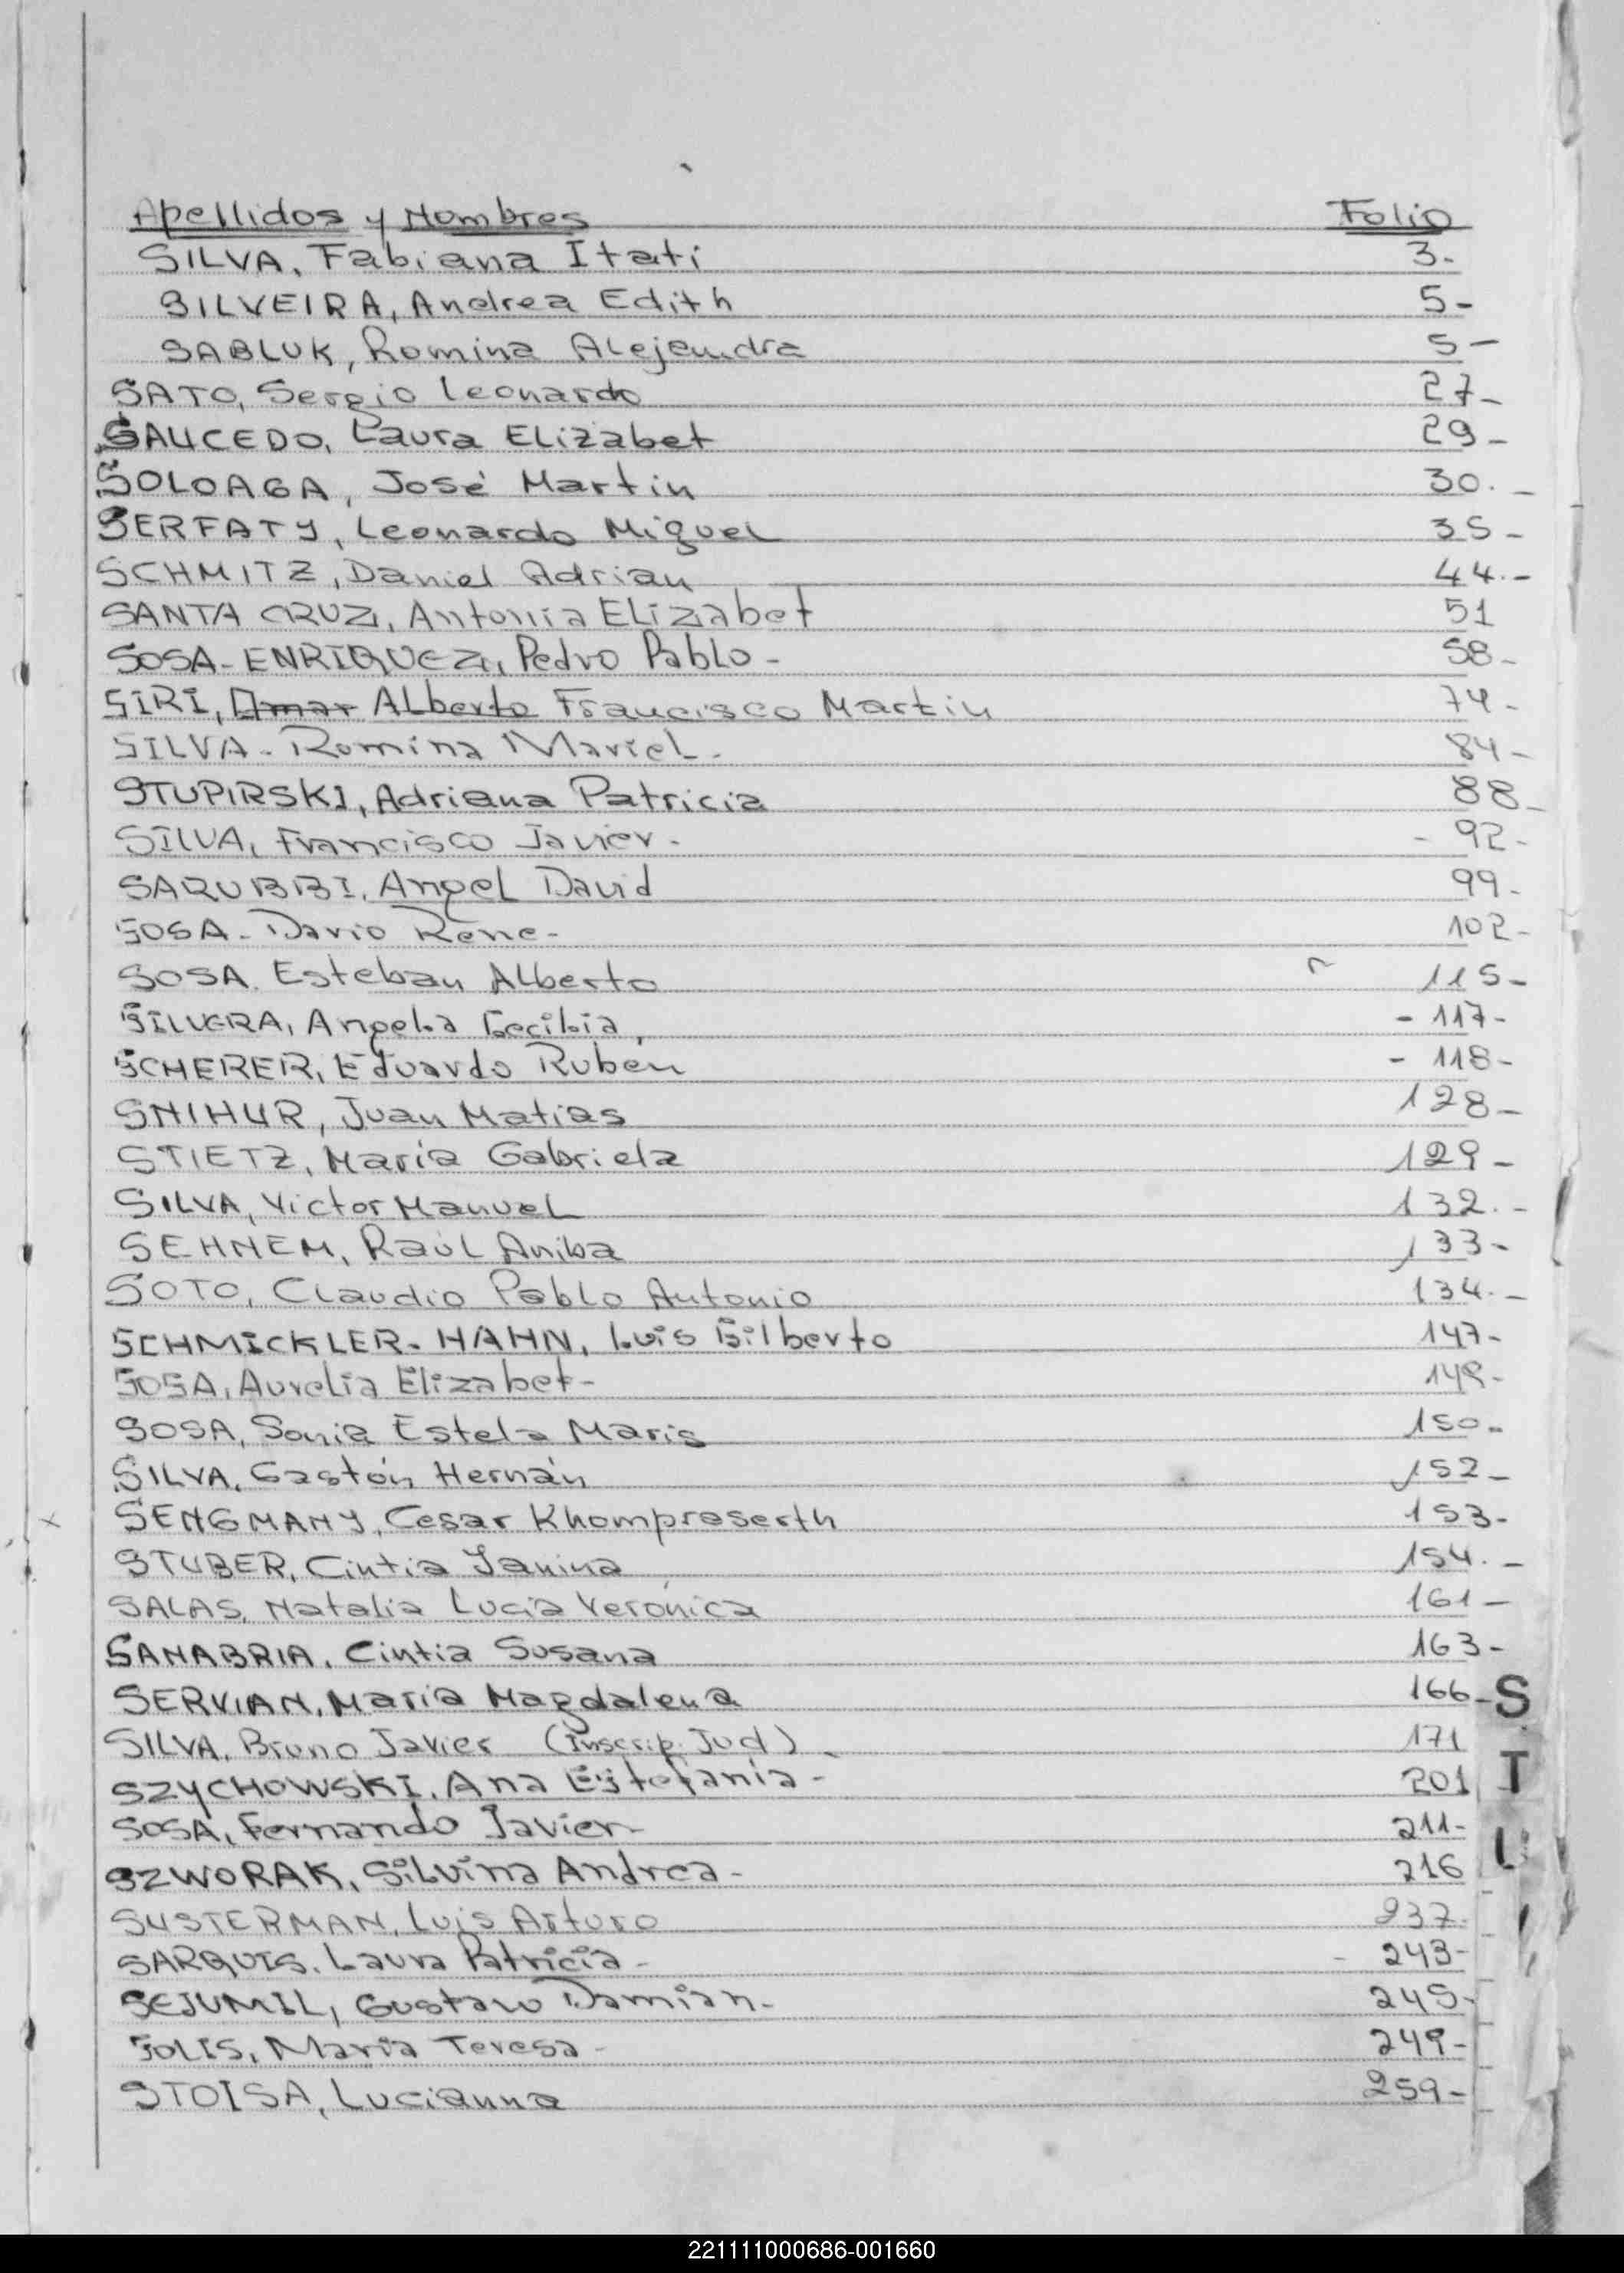 Apellidos y Nombres Folio
SILVA, Fabiana Itati 3.
SILVEIRA, Andrea Edith 5-
SABLUK, Romina Alejandra 5-
SATO, Sergio Leonardo 27-
SAUCEDO, Laura Elizabet 29-
SOLOAGA, José Martin 30.-
SERFATY, Leonardo Miguel 35-
SCHMITZ, Daniel Adrian 44.-
SANTA CRUZ, Antonia Elizabet 51
SOSA-ENRIQUEZ, Pedro Pablo- 58-
SIRI, Omar Alberto Francisco Martin 74-
SILVA- Romina Mariel- 84-
STUPIRSKI, Adriana Patricia 88-
SILVA, Francisco Javier- - 92-
SARUBBI, Angel David 99-
SOSA- Dario Rene- 102-
SOSA. Esteban Alberto 115-
SILVERA, Angela Cecilia, - 117-
SCHERER, Eduardo Ruben - 118-
SNIHUR, Juan Matias 128-
STIETZ, María Gabriela 129-
SILVA, Victor Manuel 132.-
SEHNEM, Raúl Aniba 133-
SOTO, Claudio Pablo Antonio 134.-
SCHMICKLER-HAHN, Luis Gilberto 147-
SOSA, Aurelia Elizabet- 149-
SOSA, Sonia Estela Maris 150-
SILVA, Gastón Hernán 152-
SENGMANY, Cesar Khompraserth 153-
STUBER, Cintia Janina 154.-
SALAS, Natalia Lucia Verónica 161-
SANABRIA, Cintia Susana 163-
SERVIAN, María Magdalena 166-
SILVA, Bruno Javier (Inscrip. Jud)- 171
SZYCHOWSKI, Ana Estefania- 201
SOSA, Fernando Javier- 211-
SZWORAK, Silvina Andrea- 216
SUSTERMAN, Luis Arturo 237-
SARQUIS, Laura Patricia- - 243-
SEJUMIL, Gustavo Damian- 245-
SOLIS, Maria Teresa- 249-
STOISA, Lucianna 259-
S
T
U
221111000686-001660